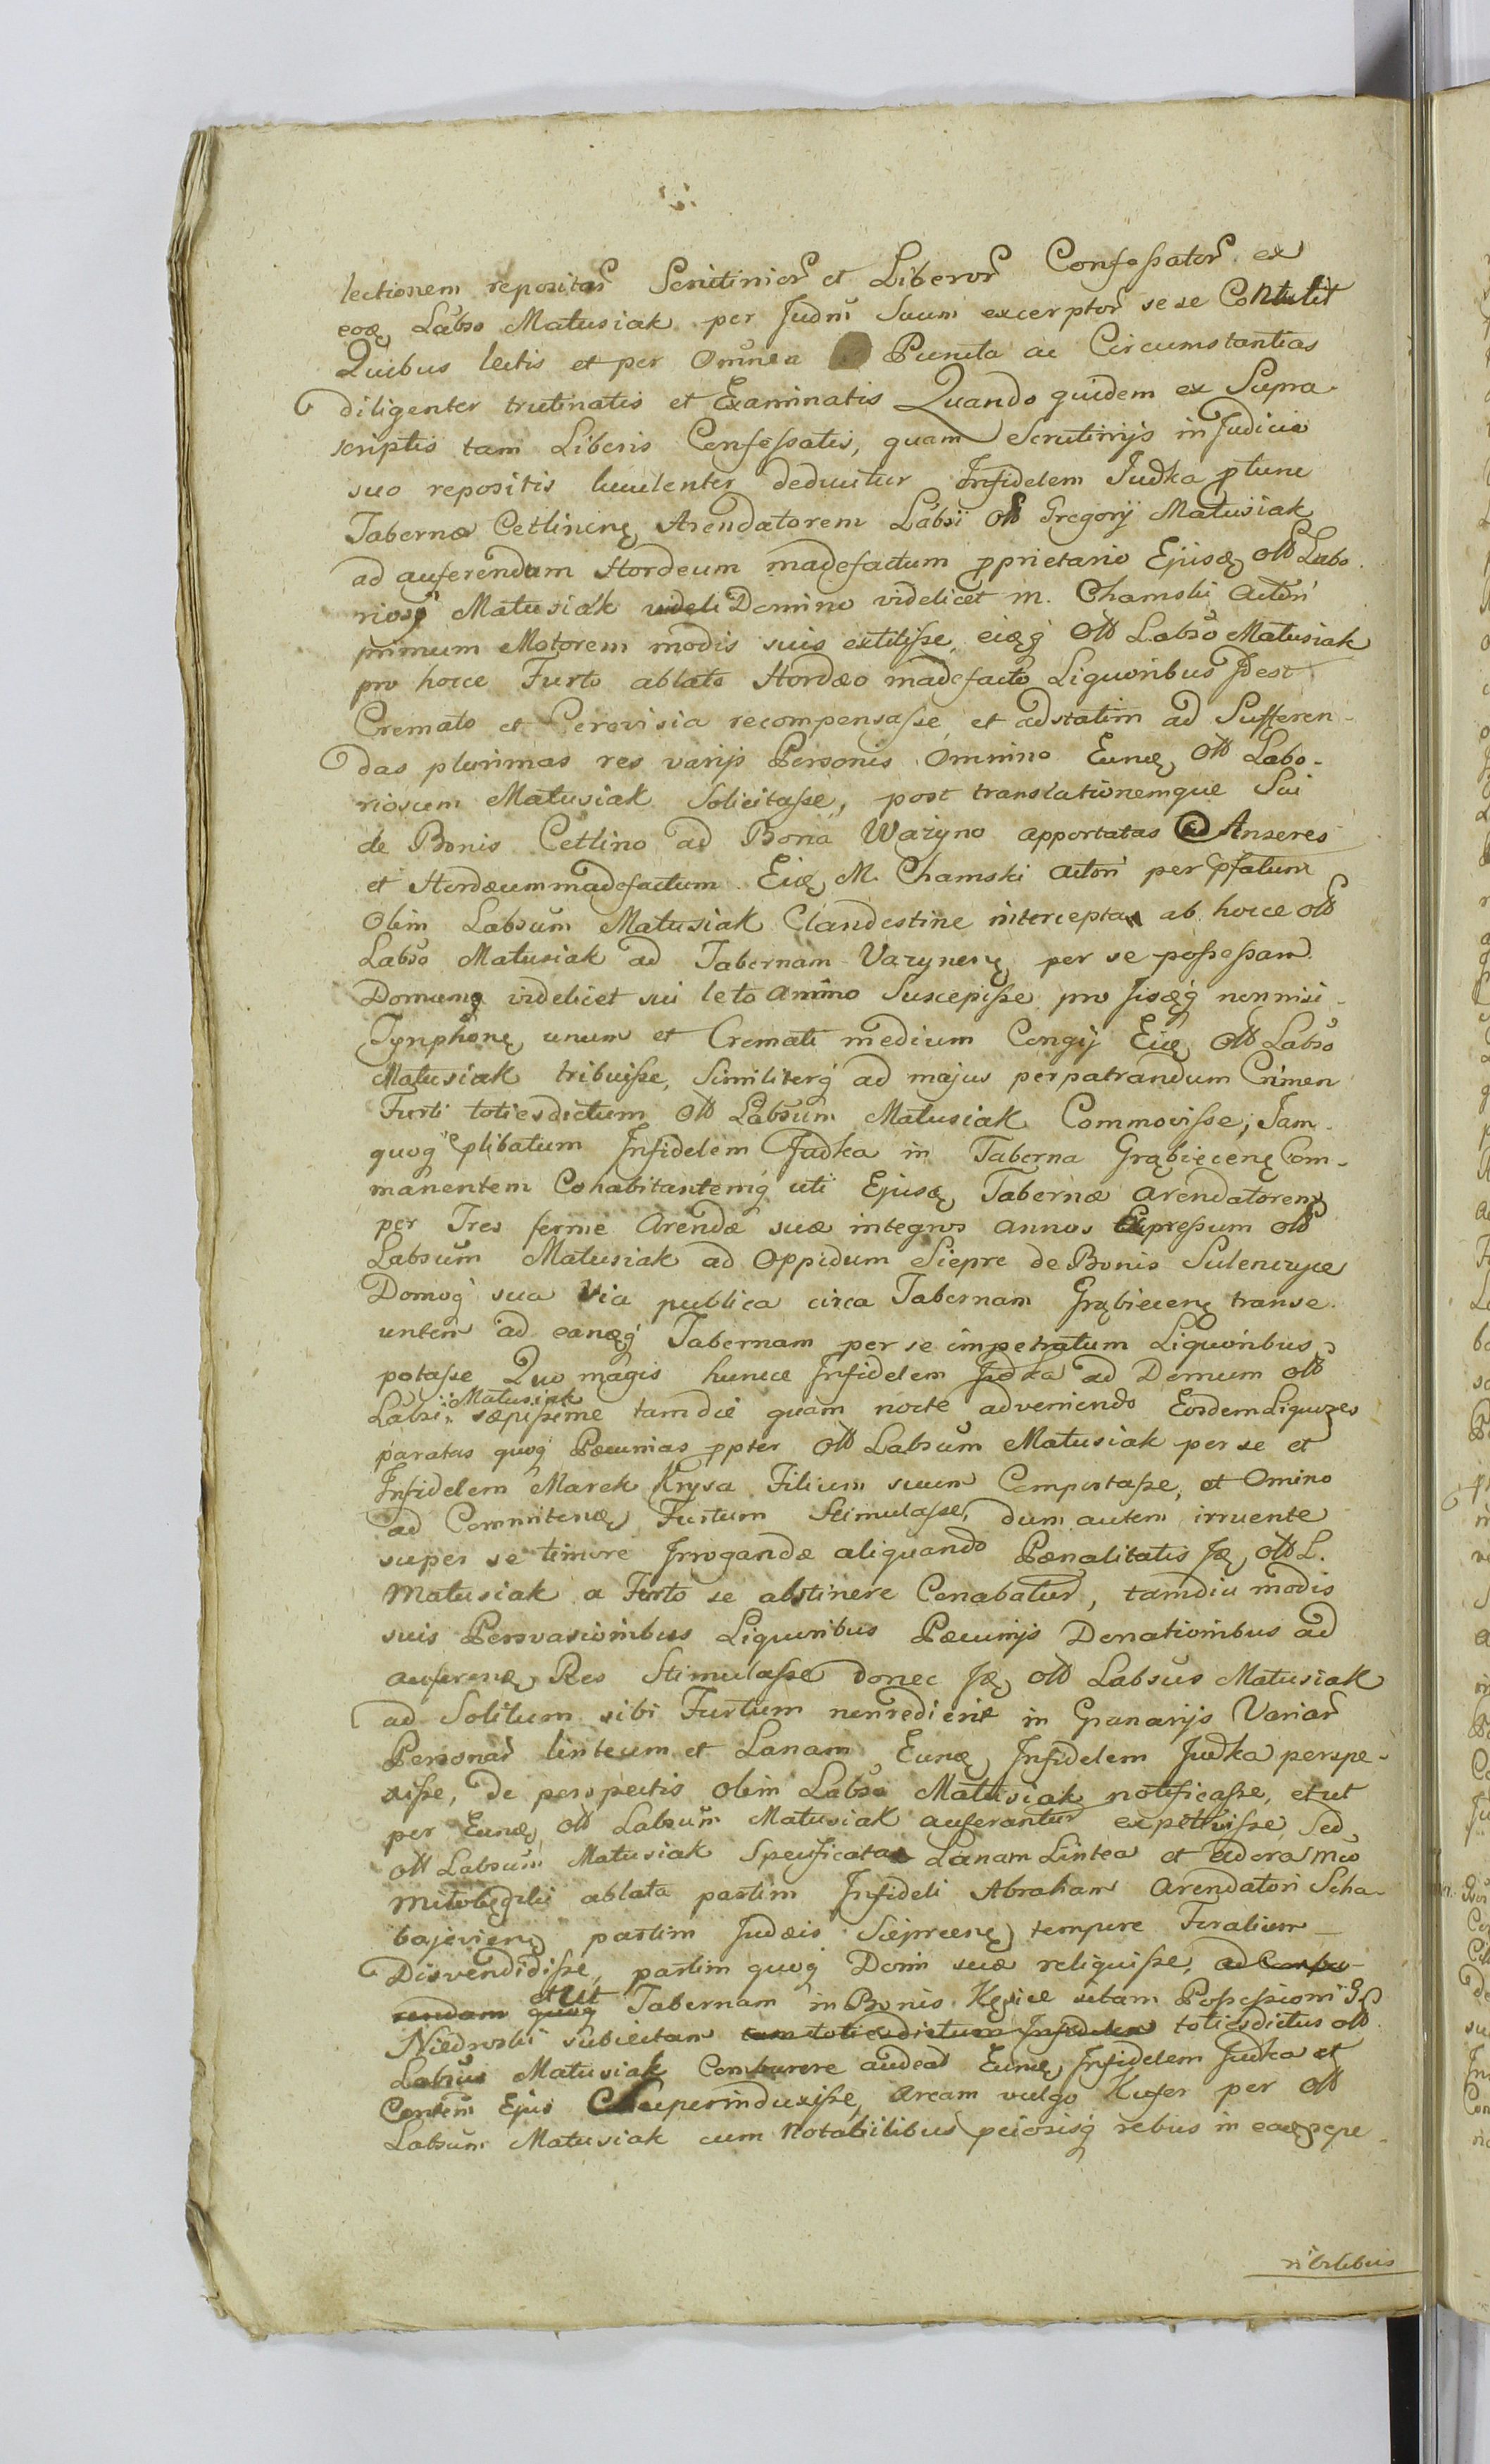 lectionem repositar Scrutinior et Liberor Confessator ex
eoq Labso Matusiak per Judm Suum excerptor sese Contulit
Quibus lectis et per Omnea Puncta ac Circumstantias
diligenter trutinatis et Examinatis Quando quidem ex Supra
scriptis tam Liberis Confessatis, quam Scrutinijs in Judicio
suo repositis luculenter deducitur Infidelem Judka ptunc
Tabernæ Cetlinenę Arendatorem Labsi olt Gregorij Matusiak
ad auferendum Hordeum madefactum pprietario Ejusq olt Labo
riosq Matusiak Domino videlicet M. Chamski Actori
primum Motorem modis suis extitisse, eiqq olt Labso Matusiak
pro hocce Furto ablato Hordæo madefacto Liquoribus Idest
Cremato et Cerevisia recompensasse, et adstatim ad Sufferen-
das plurimas res varijs Personis Omnino Eunq olt Labo-
riosum Matusiak Solicitasse, post translationemque Sui
de Bonis Cetlino ad Bona Wazyno apportatas Anseres
et Hordæum madefactum Eiq M. Chamski Actori per pfatum
Olim Labsum Matusiak Clandestine intercepta ab hocce olt
Labso Matusiak ad Tabernam Vazynenę per se possessam
Domumq videlicet sui leto animo Suscepisse pro Iisqq nonnisi
Tynphonę unum et Cremati medium Congij Eiq olt Labso
Matusiak tribuisse, Similiterq ad majus perpatrandum Crimen
Furti totiesdictum olt Labsum Matusiak Commovisse, Jam
quoq plibatum Infidelem Judka in Taberna Grąbiecenę Com-
manentem Cohabitantemq uti Ejusq Tabernæ Arendatorem
per Tres ferme Arendæ suæ integros annos Expressum olt
Labsum Matusiak ad Oppidum Siepre de Bonis Sulencyce
Domoq sua Via publica circa Tabernam Grąbiecenę transe
untem ad eanqq Tabernam per se impetratum Liquoribus
potasse Quo magis huncce Infidelem Judka ad Domum olt
Labsi Matusiak sæpissime tam die quam nocte adveniendo Eosdem Liquores
paratas quoq Pæcunias ppter olt Labsum Matusiak per se et
Infidelem Marek Krysa Filium suum Comportasse, et Omino
ad Commitenq Furtum Stimulasse, dum autem irruente
super se timore Irrogandæ aliquando Pænalitatis Iq olt L.
Matusiak a Furto se abstinere Conabatur, tamdiu modis
suis Persvasionibus Liquoribus Pæcunijs Donationibus ad
auferenq Res Stimulasse donec Iq olt Labsus Matusiak
ad Solitum sibi Furtum nonredierit in Granarijs Variar
Personar linteum et Lanam Eunq Infidelem Judka perspe-
xisse, de perspectis olim Labso Matusiak notificasse, et ut
per Eunq olt Labsum Matusiak auferantur expetivisse, Sed
olt Labsum Matusiak Specificata Lanam Lintea et
ablata partim Infideli Abraham Arendatori Scha-
bajevienę partim Judæis Sieprcenę tempore Foralium
Disvendidisse, partim quoq Domi suæ reliquisse,
et ut Tabernam in Bonis Kęsice sitam Possessioni
Niedroski subiectam totiesdictus olt
Labsus Matusiak Comburere audeat Eunq Infidelem Judka et
Ejus Superinduxisse, Arcam vulgo Kufer per olt
Labsum Matusiak cum Notabilibus peiorisq rebus in
ribilibus